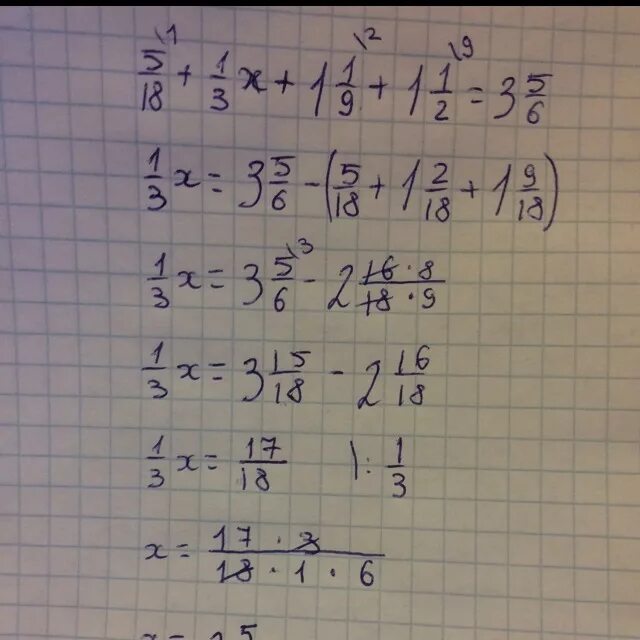 5/18 \1 + 1/3 x + 1 1/9 \2 + 1 1/2 \9 = 3 5/6
1/3 x = 3 5/6 - (5/18 + 1 2/18 + 1 9/18)
1/3 x = 3 5/6 \3 - 2 16 · 8/18 · 9
1/3 x = 3 15/18 - 2 16/18
1/3 x = 17/18 | : 1/3
x = 17 · 3/18 · 1 · 6